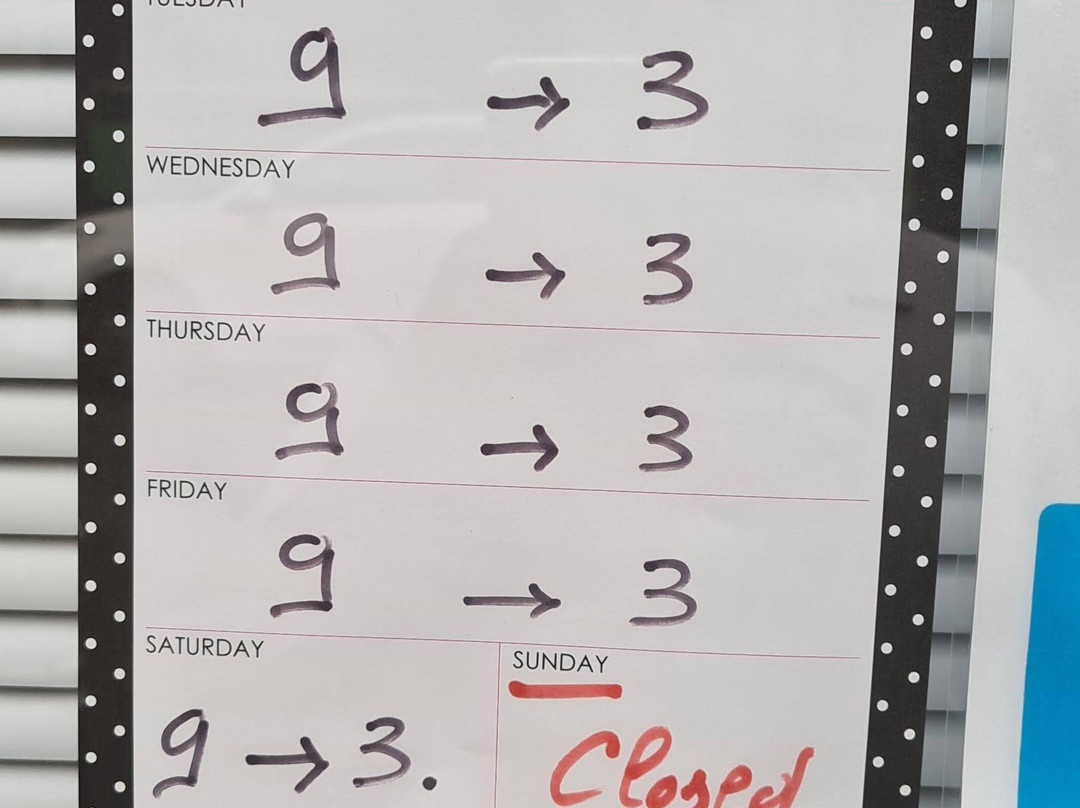 TUESDAY
9 → 3
WEDNESDAY
9 → 3
THURSDAY
9 → 3
FRIDAY
9 → 3
SATURDAY
9 → 3.
SUNDAY
Closed